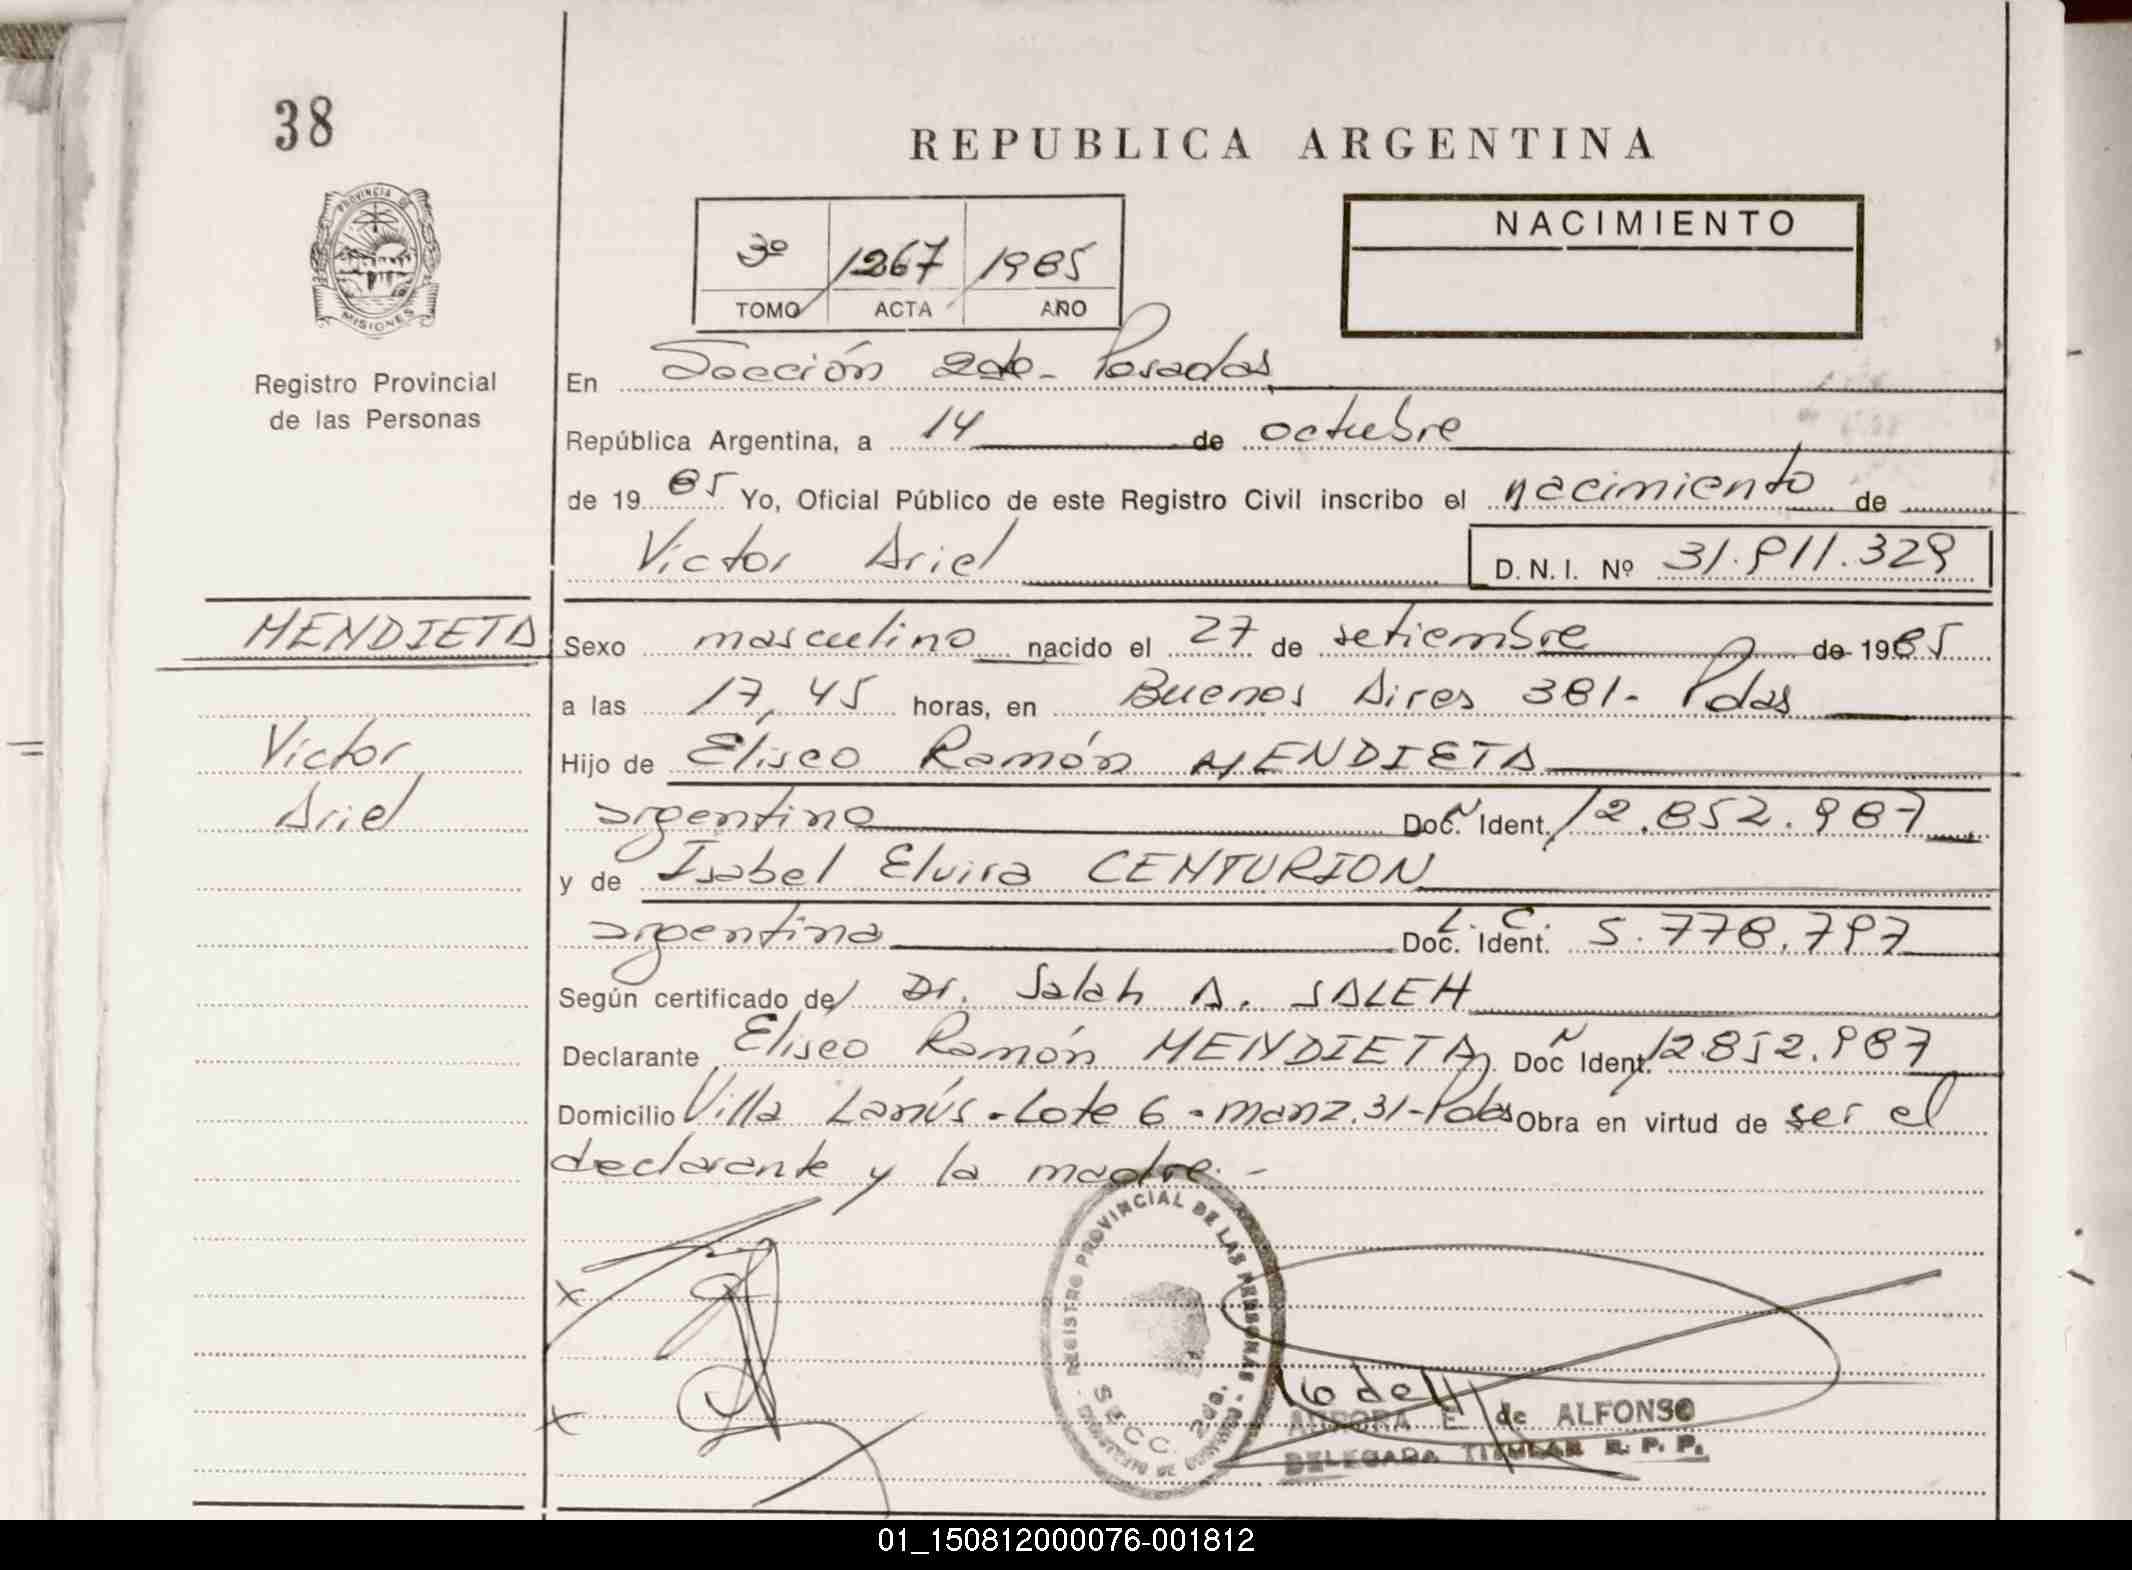 38
REPUBLICA ARGENTINA
PROVINCIA DE
MISIONES
Registro Provincial
de las Personas
3º 1267 1985
TOMO ACTA AÑO
NACIMIENTO
En Sección 2da- Posadas
República Argentina, a 14 de octubre
de 1985 Yo, Oficial Público de este Registro Civil inscribo el nacimiento de
Victor Ariel D.N.I. Nº 31.911.329
MENDIETA
Victor
Ariel
Sexo masculino nacido el 27 de setiembre de 1985
a las 17,45 horas, en Buenos Aires 381- Pdas
Hijo de Eliseo Ramón MENDIETA
argentino Doc. Ident. 12.852.987
y de Isabel Elvira CENTURION
argentina L.C. Doc. Ident. 5.778.797
Según certificado del Dr. Salah A. SALEH
Declarante Eliseo Ramón MENDIETA Doc Ident. 12.852.987
Domicilio Villa Lanús - Lote 6 - manz. 31 - Pdas Obra en virtud de ser el
declarante y la madre.-
REGISTRO PROVINCIAL DE LAS PERSONAS
SECC. 2da.
AURORA E de ALFONSO
DELEGADA TITULAR R. P. P.
01_150812000076-001812